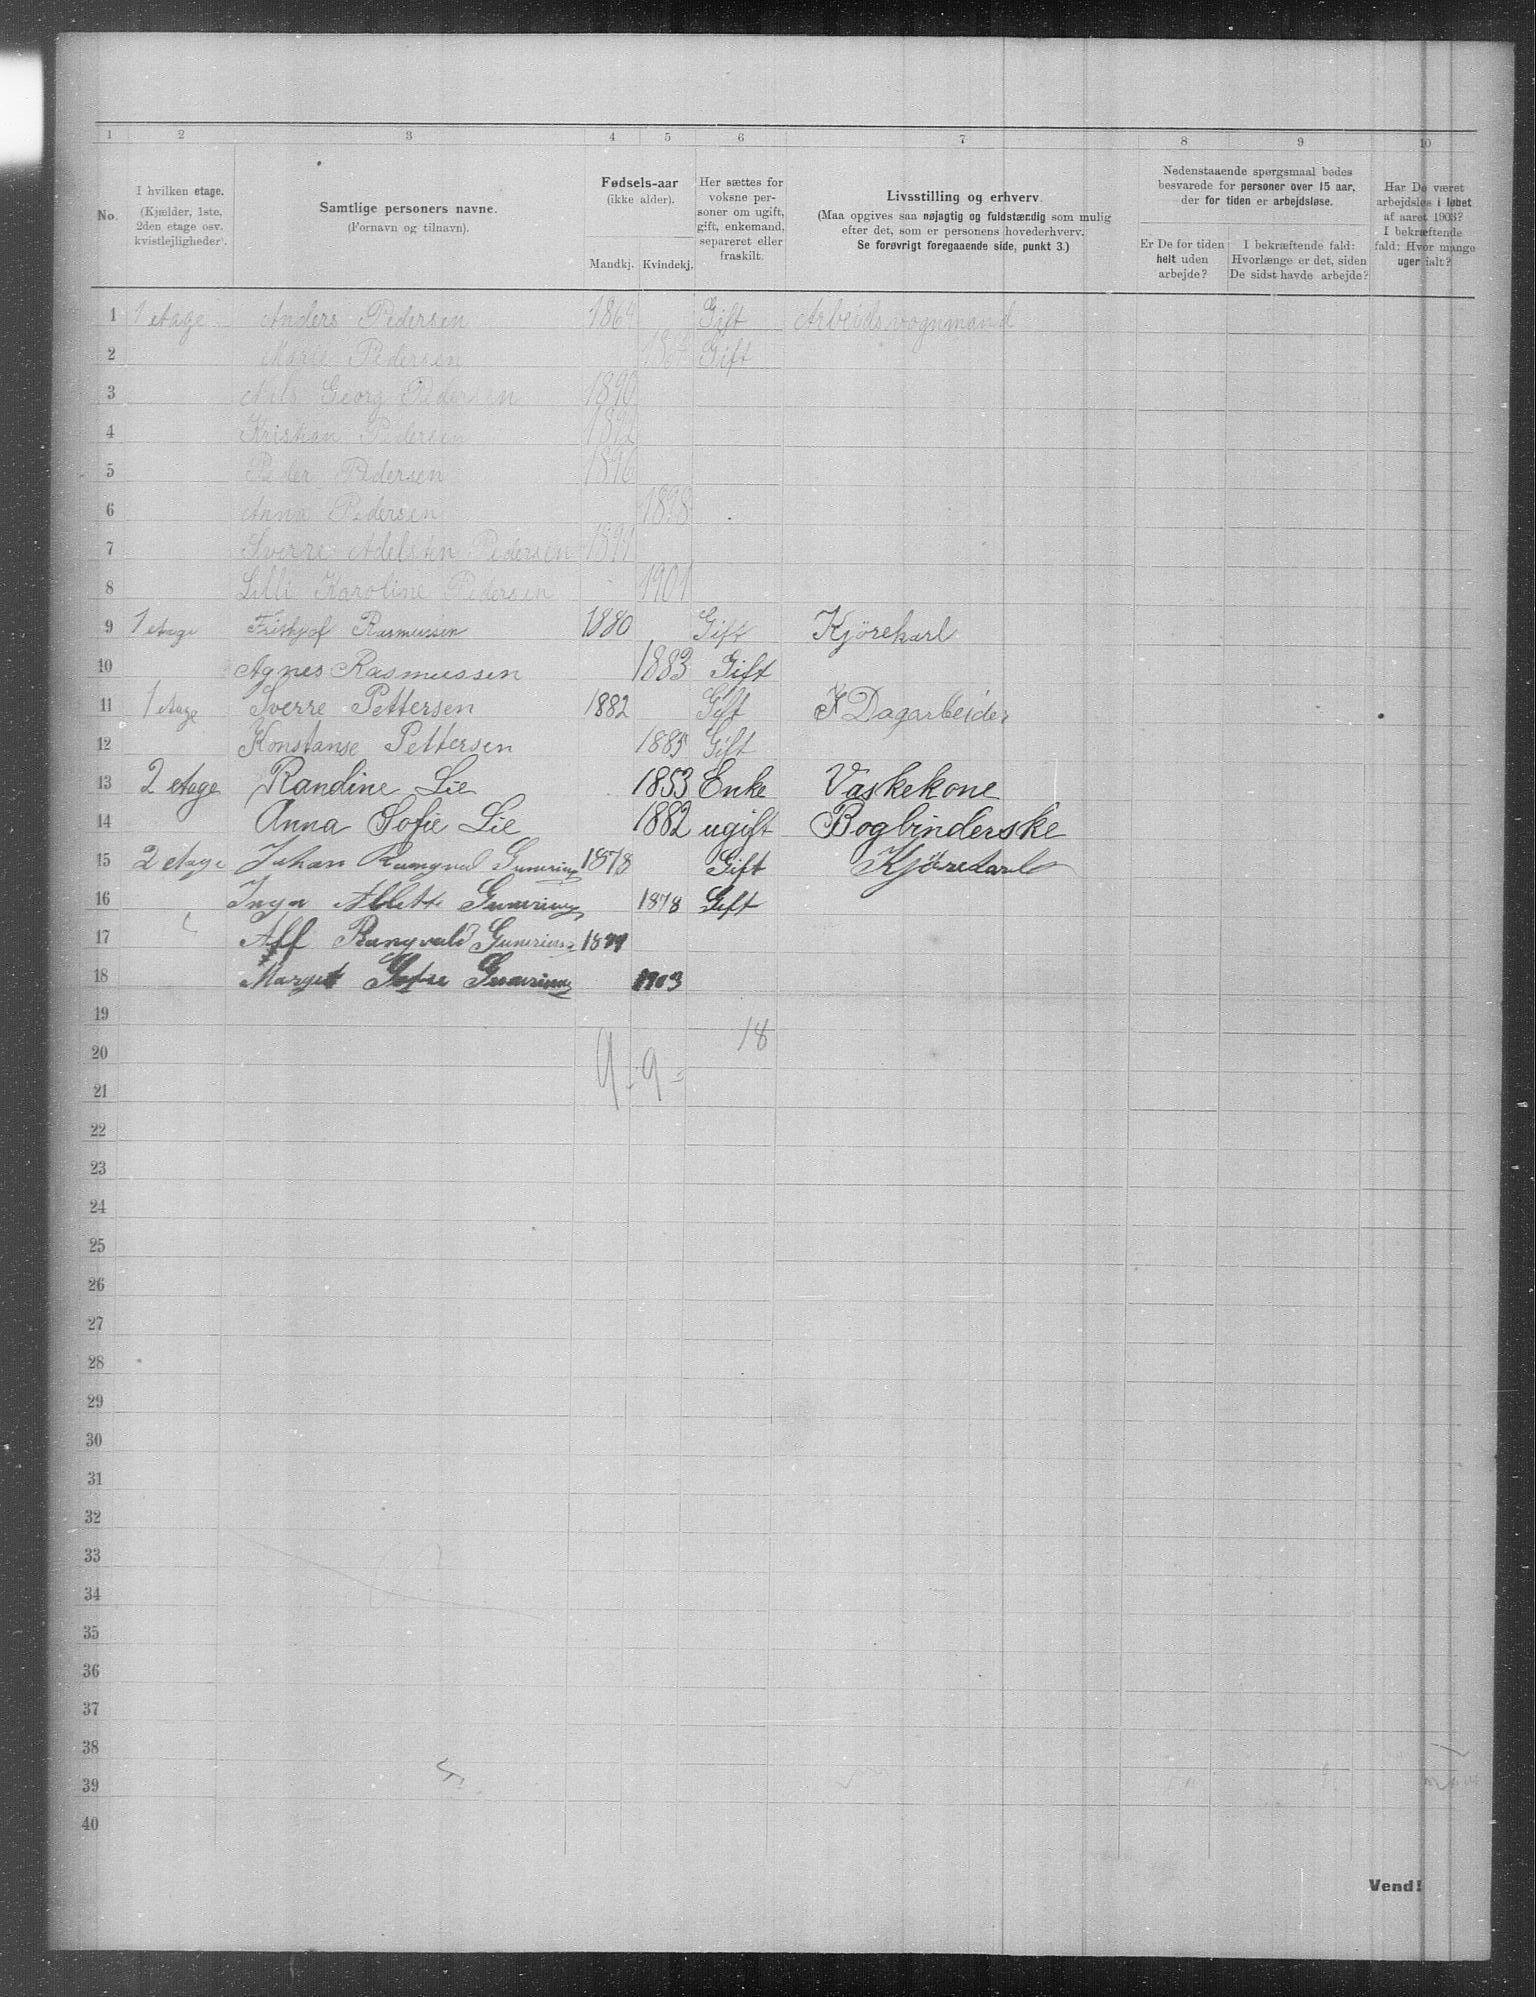 1 2 3 4 5 6 7 8 9 10
No.
I hvilken etage.
(Kjælder, 1ste,
2den etage osv.
kvistlejligheder).
Samtlige personers navne.
(Fornavn og tilnavn).
Fødsels-aar
(ikke alder).
Mandkj. Kvindekj.
Her sættes for
voksne per-
soner om ugift,
gift, enkemand,
separeret eller
fraskilt.
Livsstilling og erhverv.
(Maa opgives saa nøjagtig og fuldstændig som mulig
efter det, som er personens hovederhverv.
Se forøvrigt foregaaende side, punkt 3.)
Nedenstaaende spørgsmaal bedes
besvarede for personer over 15 aar,
der for tiden er arbejdsløse.
Er De for tiden
helt uden
arbejde?
I bekræftende fald:
Hvorlænge er det, siden
De sidst havde arbejde?
Har De været
arbejdsløs i løbet
af aaret 1903?
I bekræftende
fald: Hvor mange
uger ialt?
1 1 etage Anders Pedersen Gift Arbeidsvognmand
2 Marie Pedersen Gift
3 Nils Georg Pedersen 1890
4 Kristian Pedersen 1892
5 Peder Pedersen 1896
6 Anna Pedersen 1898
7 Sverre Adelsten Pedersen 1899
8 Lilli Karoline Pedersen 1901
9 1 etage Frithjof Rasmussen 1880 Gift Kjørekarl
10 Agnes Rasmussen 1883 Gift
11 1 etage Sverre Pettersen 1882 Gift Dagarbeider
12 Konstanse Pettersen 1885 Gift
13 2 etage Randine Lie 1853 Enke Vaskekone
14 Anna Sofie Lie 1882 ugift Bogbinderske
15 2 etage Johan 1878 Gift Kjørekarl
16 1878 Gift
17
18 1903
19
18
20
9 - 9 =
21
22
23
24
25
26
27
28
29
30
31
32
33
34
35
36
37
38
39
40
Vend!